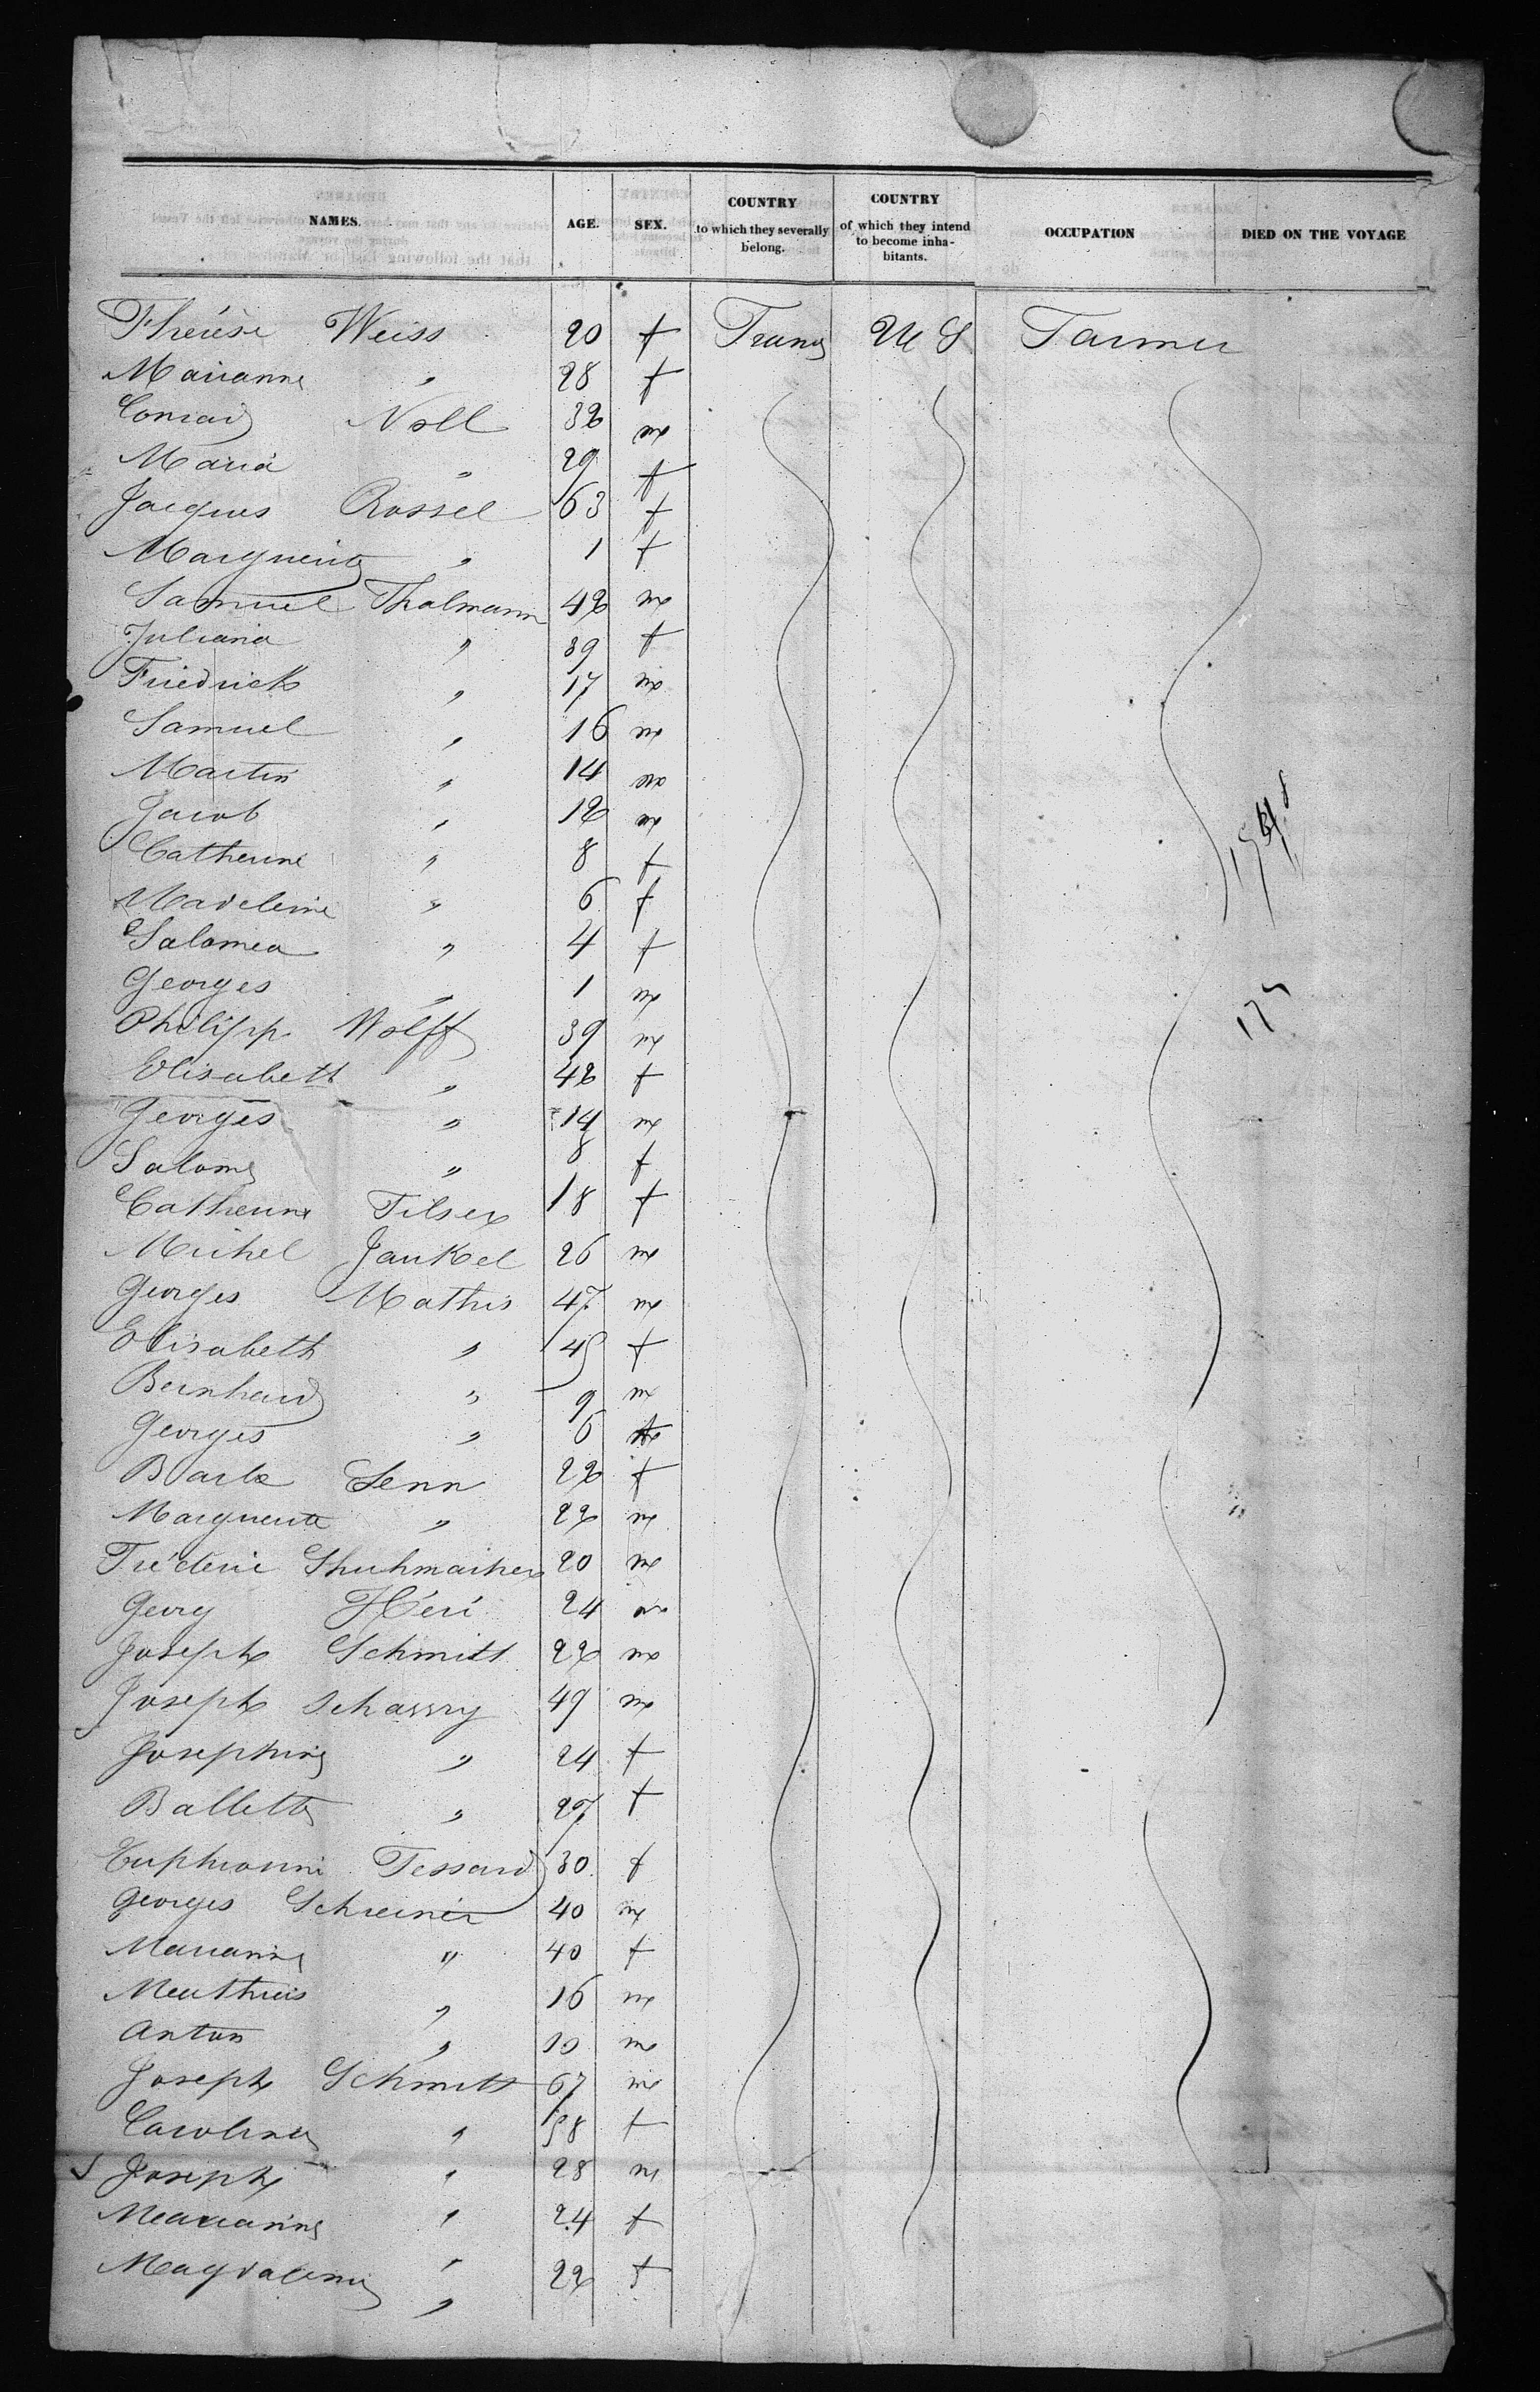 NAMES. AGE. SEX. COUNTRY to which they severally belong. COUNTRY of which they intend to become inha-bitants. OCCUPATION DIED ON THE VOYAGE
Thérèse Weiss 20 f France U S Farmer
Marianne " 28 f
Conrad Noll 32 m
Maria " 29 f
Jacques Rossel 63 f
Marguerite " 1 f
Samuel Thalmann 42 m
Juliana " 39 f
Friedrick " 17 m
Samuel " 16 m
Martin " 14 m
Jacob " 12 m
Catherine " 8 f
Madeleine " 6 f
Salomea " 4 f
Georges " 1 m
Philipp Wolff 39 m
Elisabeth " 42 f
Georges " 14 m
Salome " 8 f
Catherine 18 f
Michel Jaukel 26 m
Georges Mathis 47 m
Elisabeth " 45 f
Bernhard " 9 m
Georges " 6
Barbe Senn 22 f
Marguerite " 22 m
Fréderic 20 m
Georg Héri 24 m
Joseph Schmitt 22 m
Joseph 49 m
Josephine " 24 f
Ballette " 27 f
Tessard 30 f
Georges Schreiner 40 m
Marianne " 40 f
Mathias " 16 m
Anton " 10 m
Joseph Schmitt 67 m
Caroline " 58 f
Joseph " 28 m
Marianne " 24 f
Magdalena " 22 f